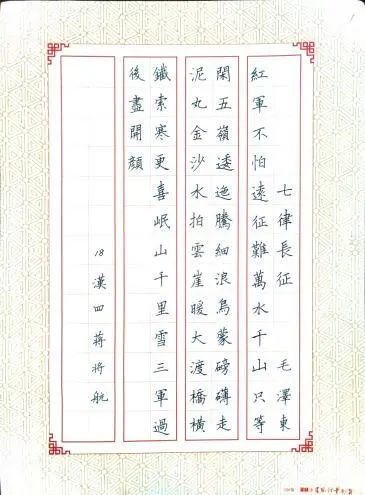 七律長征 毛澤東
紅軍不怕遠征難萬水千山只等
閑五嶺逶迤騰細浪烏蒙磅礴走
泥丸金沙水拍雲崖暖大渡橋橫
鐵索寒更喜岷山千里雪三軍過
後盡開顏
18漢四蔣将航